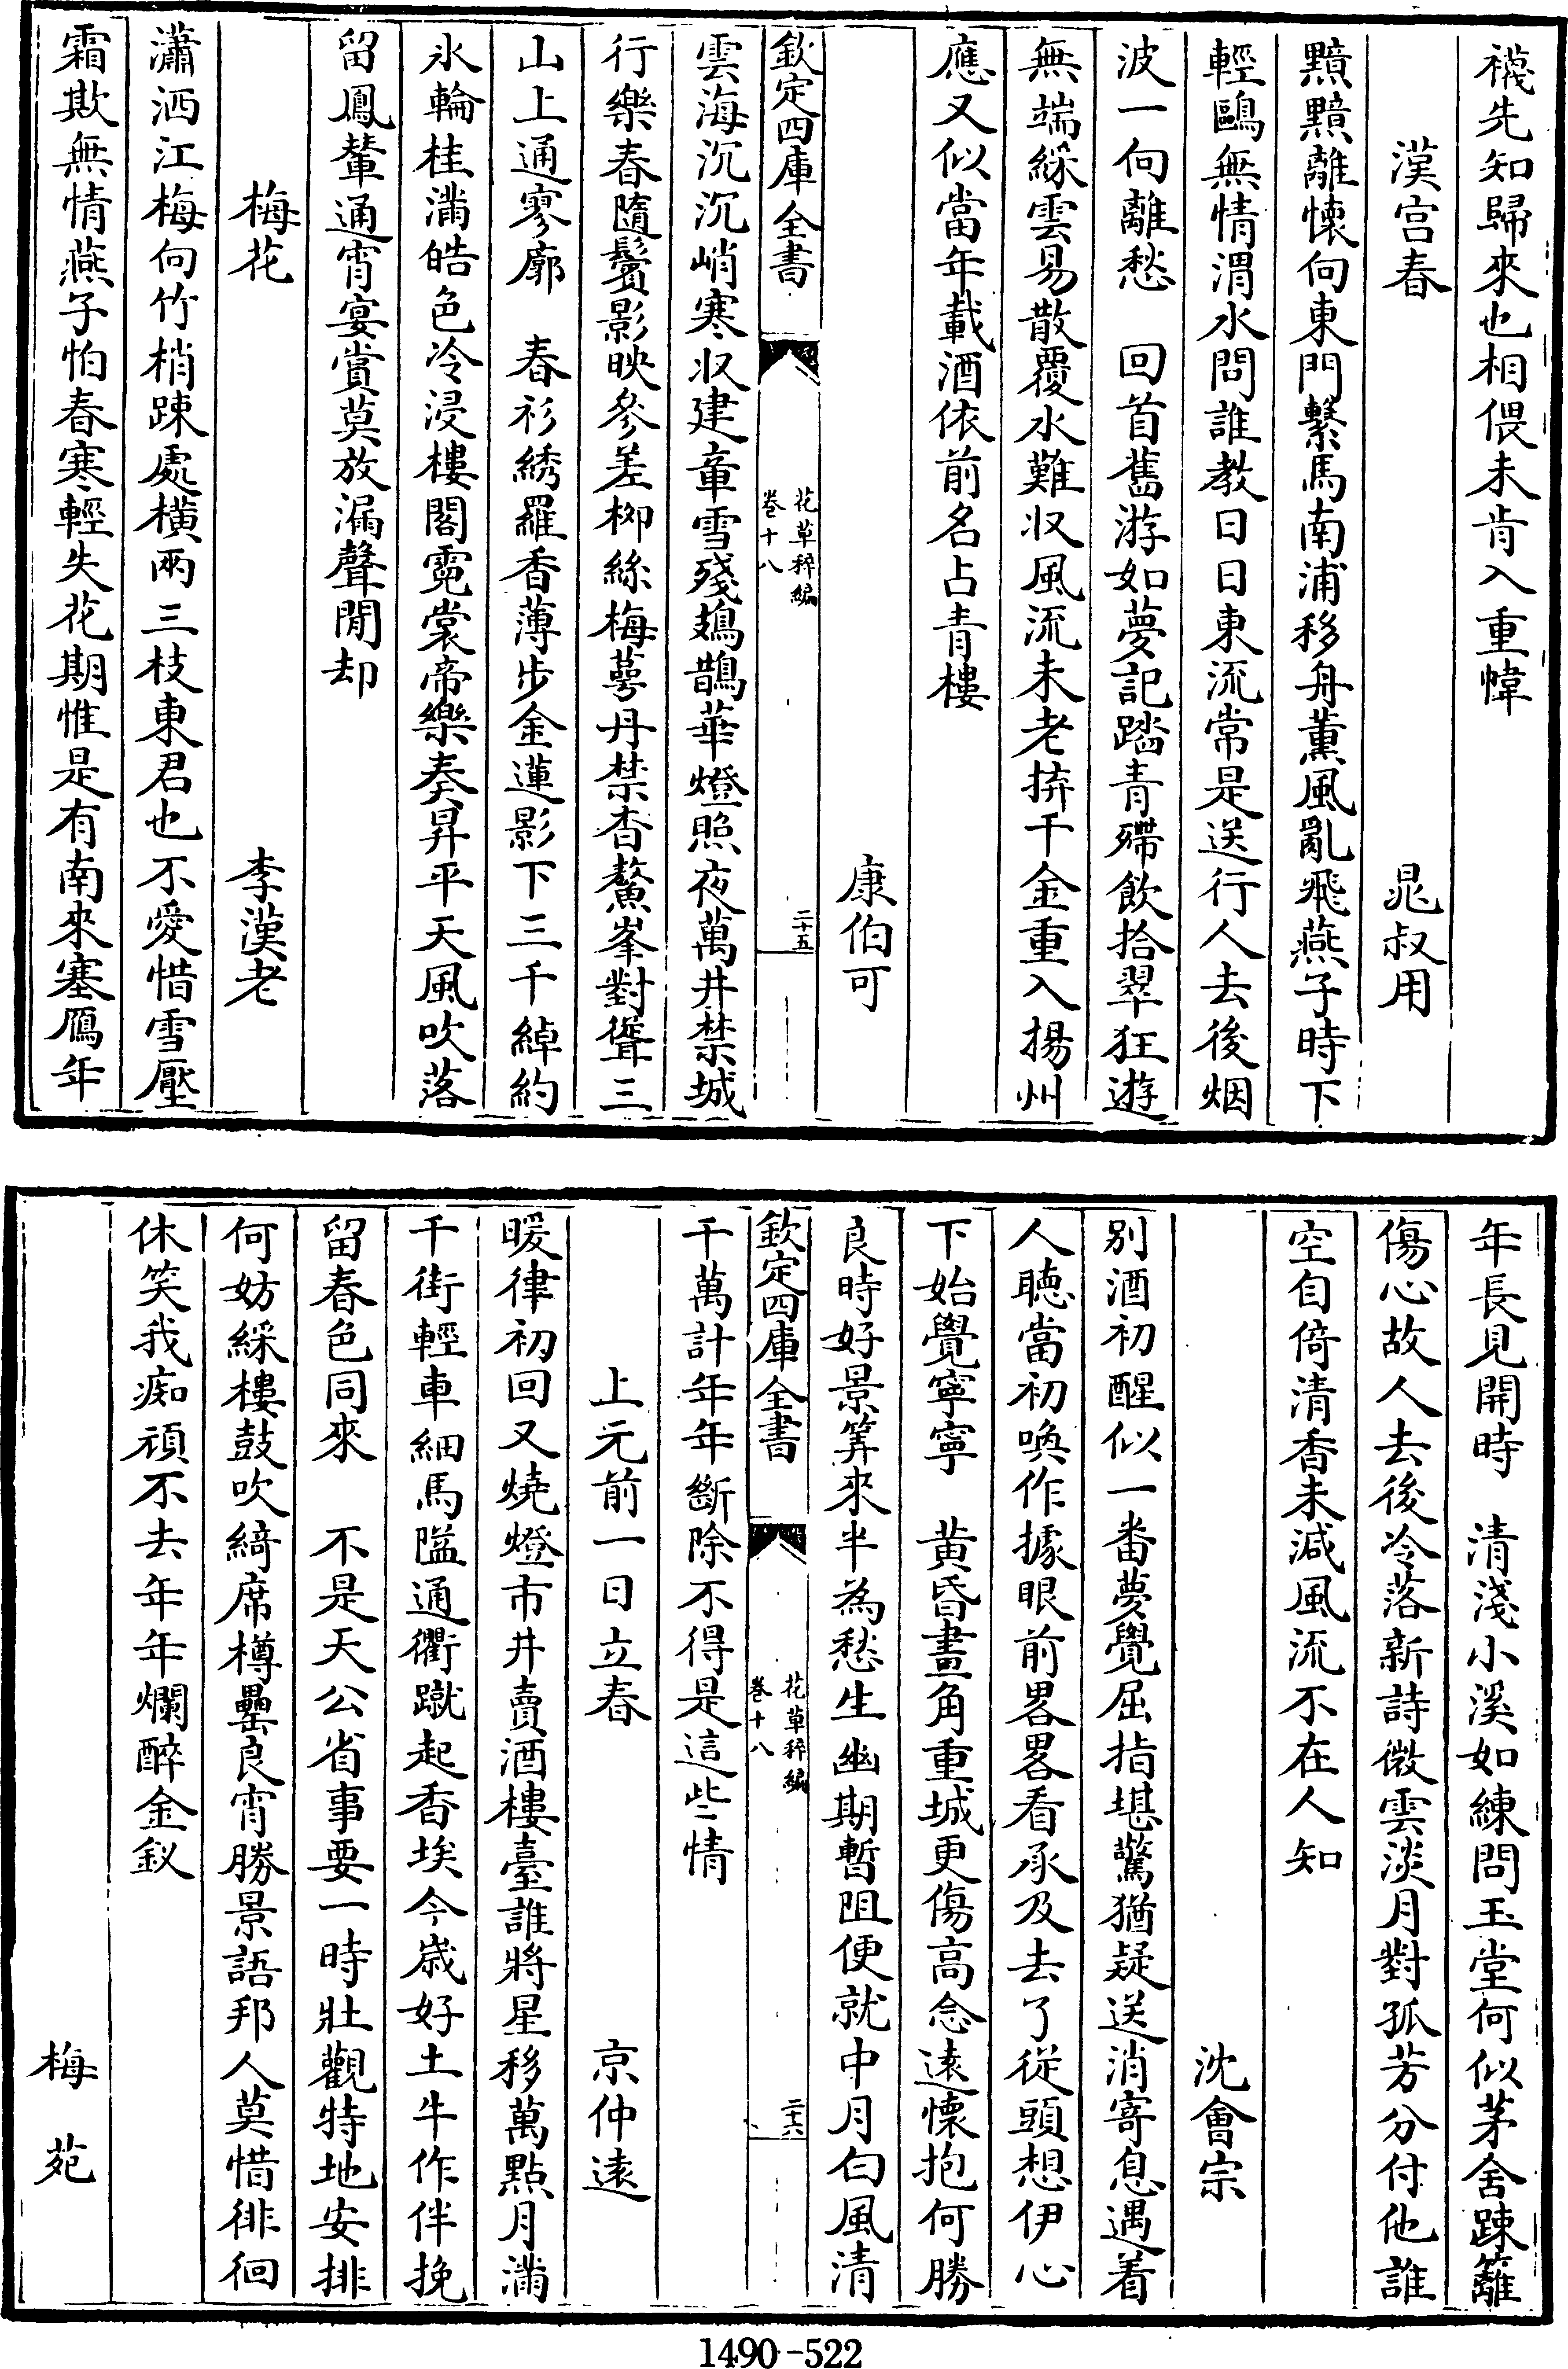 襪先知歸來也相偎未肯入重幃
漢宫春　晁叔用
黯黯離懷向東門繫馬南浦移舟薰風亂飛燕子時下
輕鷗無情渭水問誰教日日東流常是送行人去後烟
波一向離愁　回首舊游如夢記踏青殢飲拾翠狂遊
無端綵雲易散覆水難収風流未老拚千金重入揚州
應又似當年載酒依前名占青樓
康伯可
欽定四庫全書　花草稡編　卷十八　二十五
雲海沉沉峭寒収建章雪殘鳷鵲華燈照夜萬井禁城
行樂春隨鬢影映參差柳絲梅萼丹禁杳鰲峯對聳三
山上通寥廓　春衫綉羅香薄步金蓮影下三千綽約
氷輪桂滿皓色冷浸樓閣霓裳帝樂奏昇平天風吹落
留鳳輦通宵宴賞莫放漏聲閒却
梅花　李漢老
瀟洒江梅向竹梢踈處横兩三枝東君也不愛惜雪壓
霜欺無情燕子怕春寒輕失花期惟是有南來塞鴈年
年長見開時　清淺小溪如練問玉堂何似茅舍踈籬
傷心故人去後冷落新詩微雲淡月對孤芳分付他誰
空自倚清香未減風流不在人知
沈會宗
别酒初醒似一番夢覺屈指堪驚猶疑送消寄息遇着
人聴當初喚作據眼前畧畧看承及去了從頭想伊心
下始覺寧寧　黄昏畫角重城更傷高念逺懷抱何勝
良時好景筭來半為愁生幽期暫阻便就中月白風清
欽定四庫全書　花草稡編　卷十八　二十六
千萬計年年斷除不得是這些情
上元前一日立春　京仲逺
暖律初回又燒燈市井賣酒樓臺誰將星移萬點月滿
千街輕車細馬隘通衢蹴起香埃今嵗好土牛作伴挽
留春色同來　不是天公省事要一時壯觀特地安排
何妨綵樓鼓吹綺席樽罍良宵勝景語邦人莫惜徘徊
休笑我痴頑不去年年爛醉金釵
梅苑
1490-522